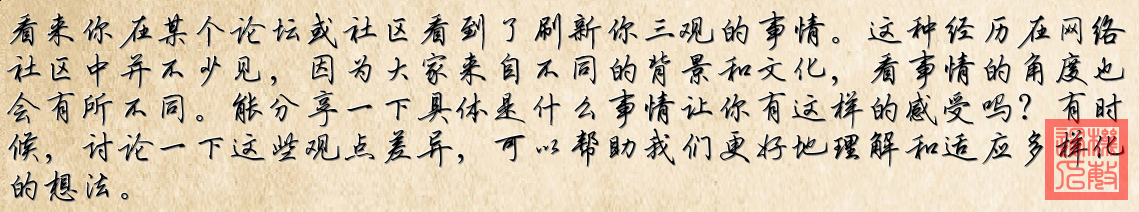 看来你在某个论坛或社区看到了刷新你三观的事情。这种经历在网络
社区中并不少见，因为大家来自不同的背景和文化，看事情的角度也
会有所不同。能分享一下具体是什么事情让你有这样的感受吗？有时
候，讨论一下这些观点差异，可以帮助我们更好地理解和适应多样化
的想法。